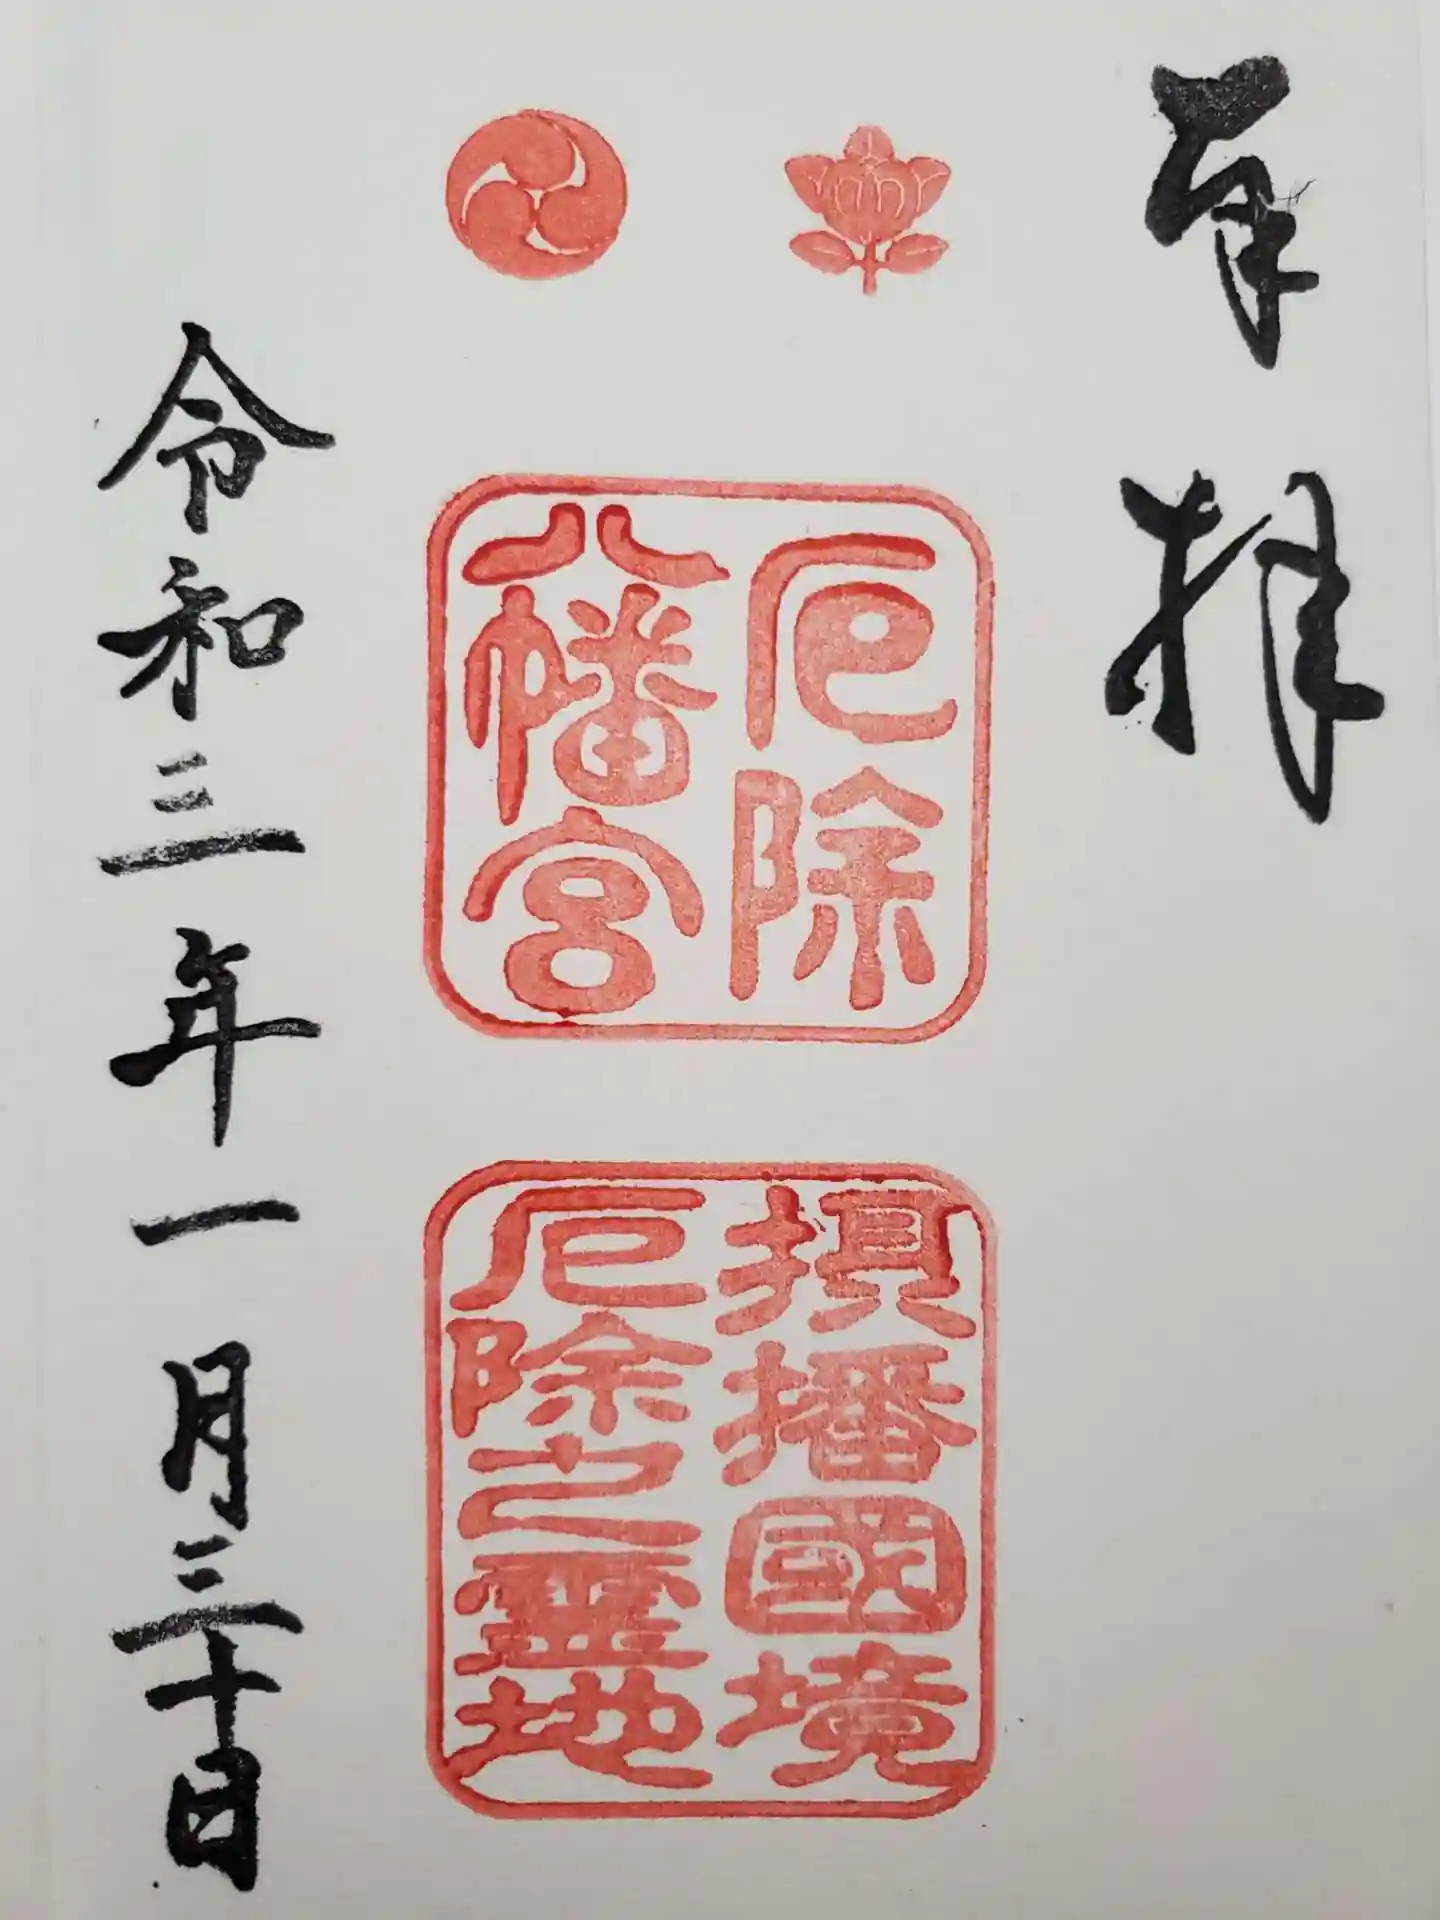 奉拝
厄除
八幡宮
摂播國境
厄除之靈地
令和三年一月三十日